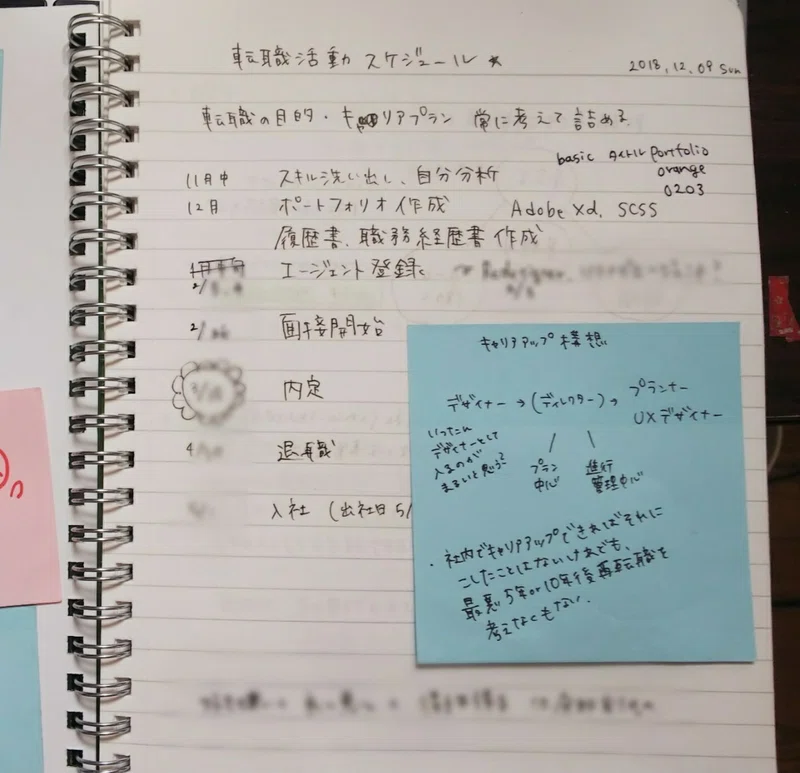 転職活動 スケジュール ★
2018.12.09 Sun
転職の目的・キャリアプラン 常に考えて詰める
basic タイトル portfolio
orange
0203
11月中 スキル洗い出し、自分分析
12月 ポートフォリオ作成 Adobe Xd, SCSS
履歴書、職務経歴書作成
エージェント登録
2/ 面接開始
内定
4/ 退職
入社 (出社日 5/
キャリアアップ構想
デザイナー → (ディレクター) → プランナー
UXデザイナー
いったん
デザイナーとして
入るのが
まるいと思う?
プラン
中心
進行
管理中心
・社内でキャリアアップできればそれに
こしたことはないけれども、
最悪5年or10年後再転職を
考えなくもない.